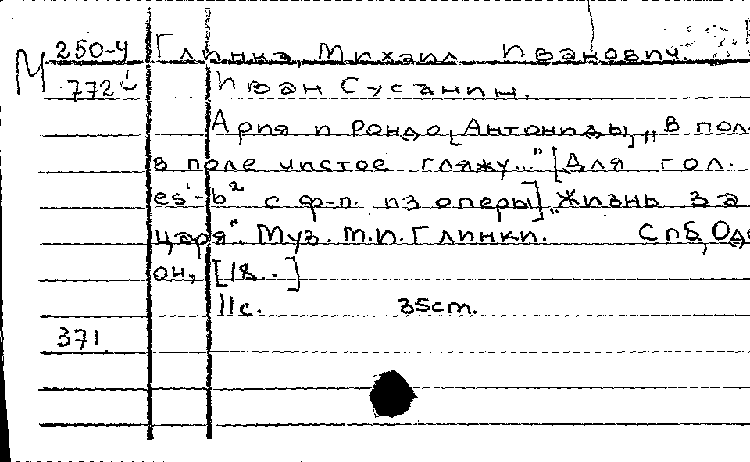 250-4 Глинка, Михаил Иванович.
М 772 Иван Сусанин.
Ария и Рондо [Антониды] „В поле
в поле чистое гляжу..." [Для гол.
es¹-b² с ф-п. из оперы] „Жизнь за
царя". Муз. М.И. Глинки. Спб, Оде
он, [18..]
11с. 35см.
371